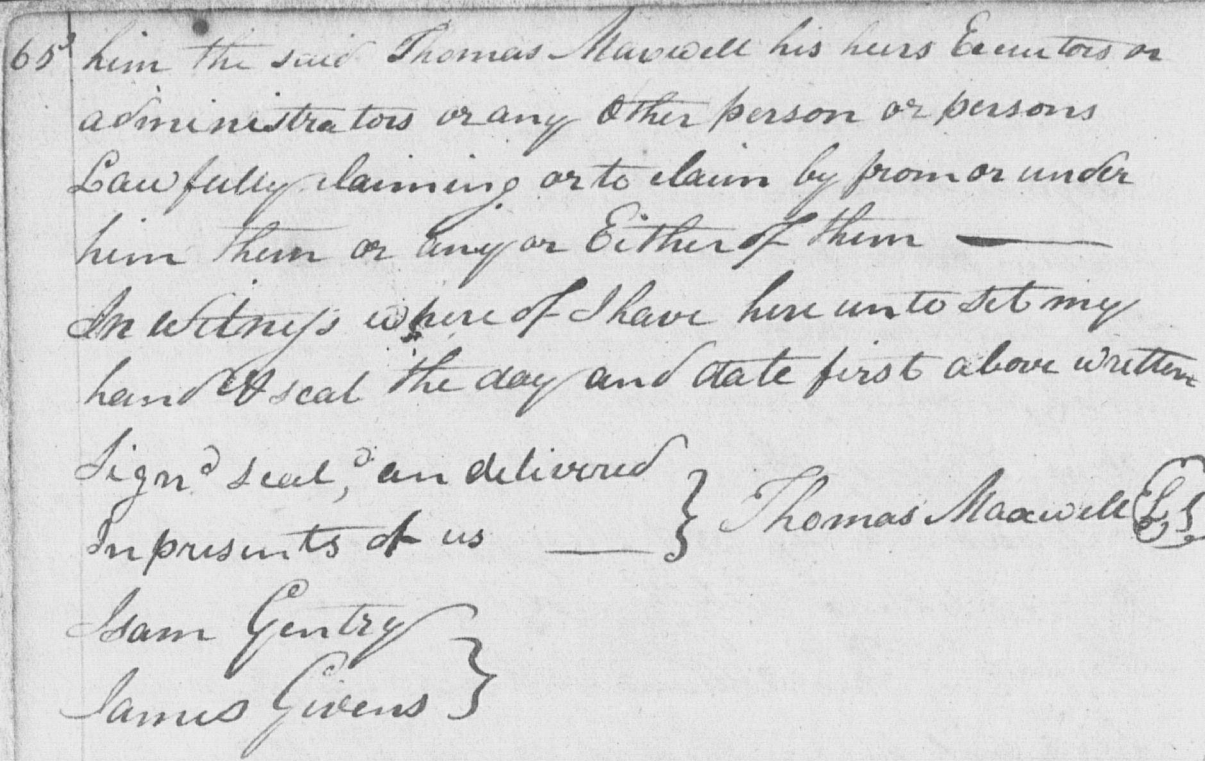 65 him the said Thomas Maxwell his heirs Executors or
administrators or any Other person or persons
Lawfully claiming or to claim by from or under
him them or any or Either of them —
In Witness where of I have here unto set my
hand & seal the day and date first above written
Sign'd seal,'d an delivered
In presents of us — } Thomas Maxwell
Isam Gentry
James Givens }